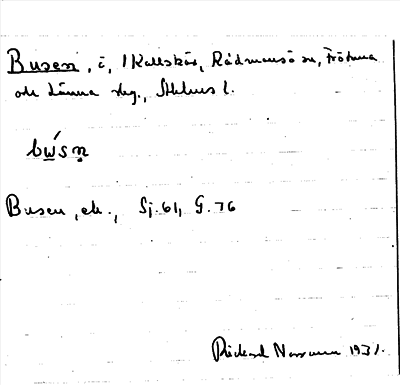 Busen, i, 1 Kallskär, Rådmansö sn, Frötuna
och Länna skg., Sthlms l.
bẃsn
Busen, ek., Sj. 61, G. 76
Rickard 1931.